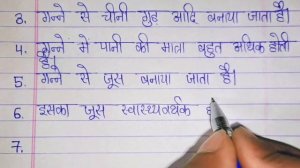 3. गन्ने से चीनी गुड़ आदि बनाया जाता है।
4. गन्ने में पानी की मात्रा बहुत अधिक होती
है।
5. गन्ने से जूस बनाया जाता है।
6. इसका जूस स्वास्थ्यवर्धक
7.